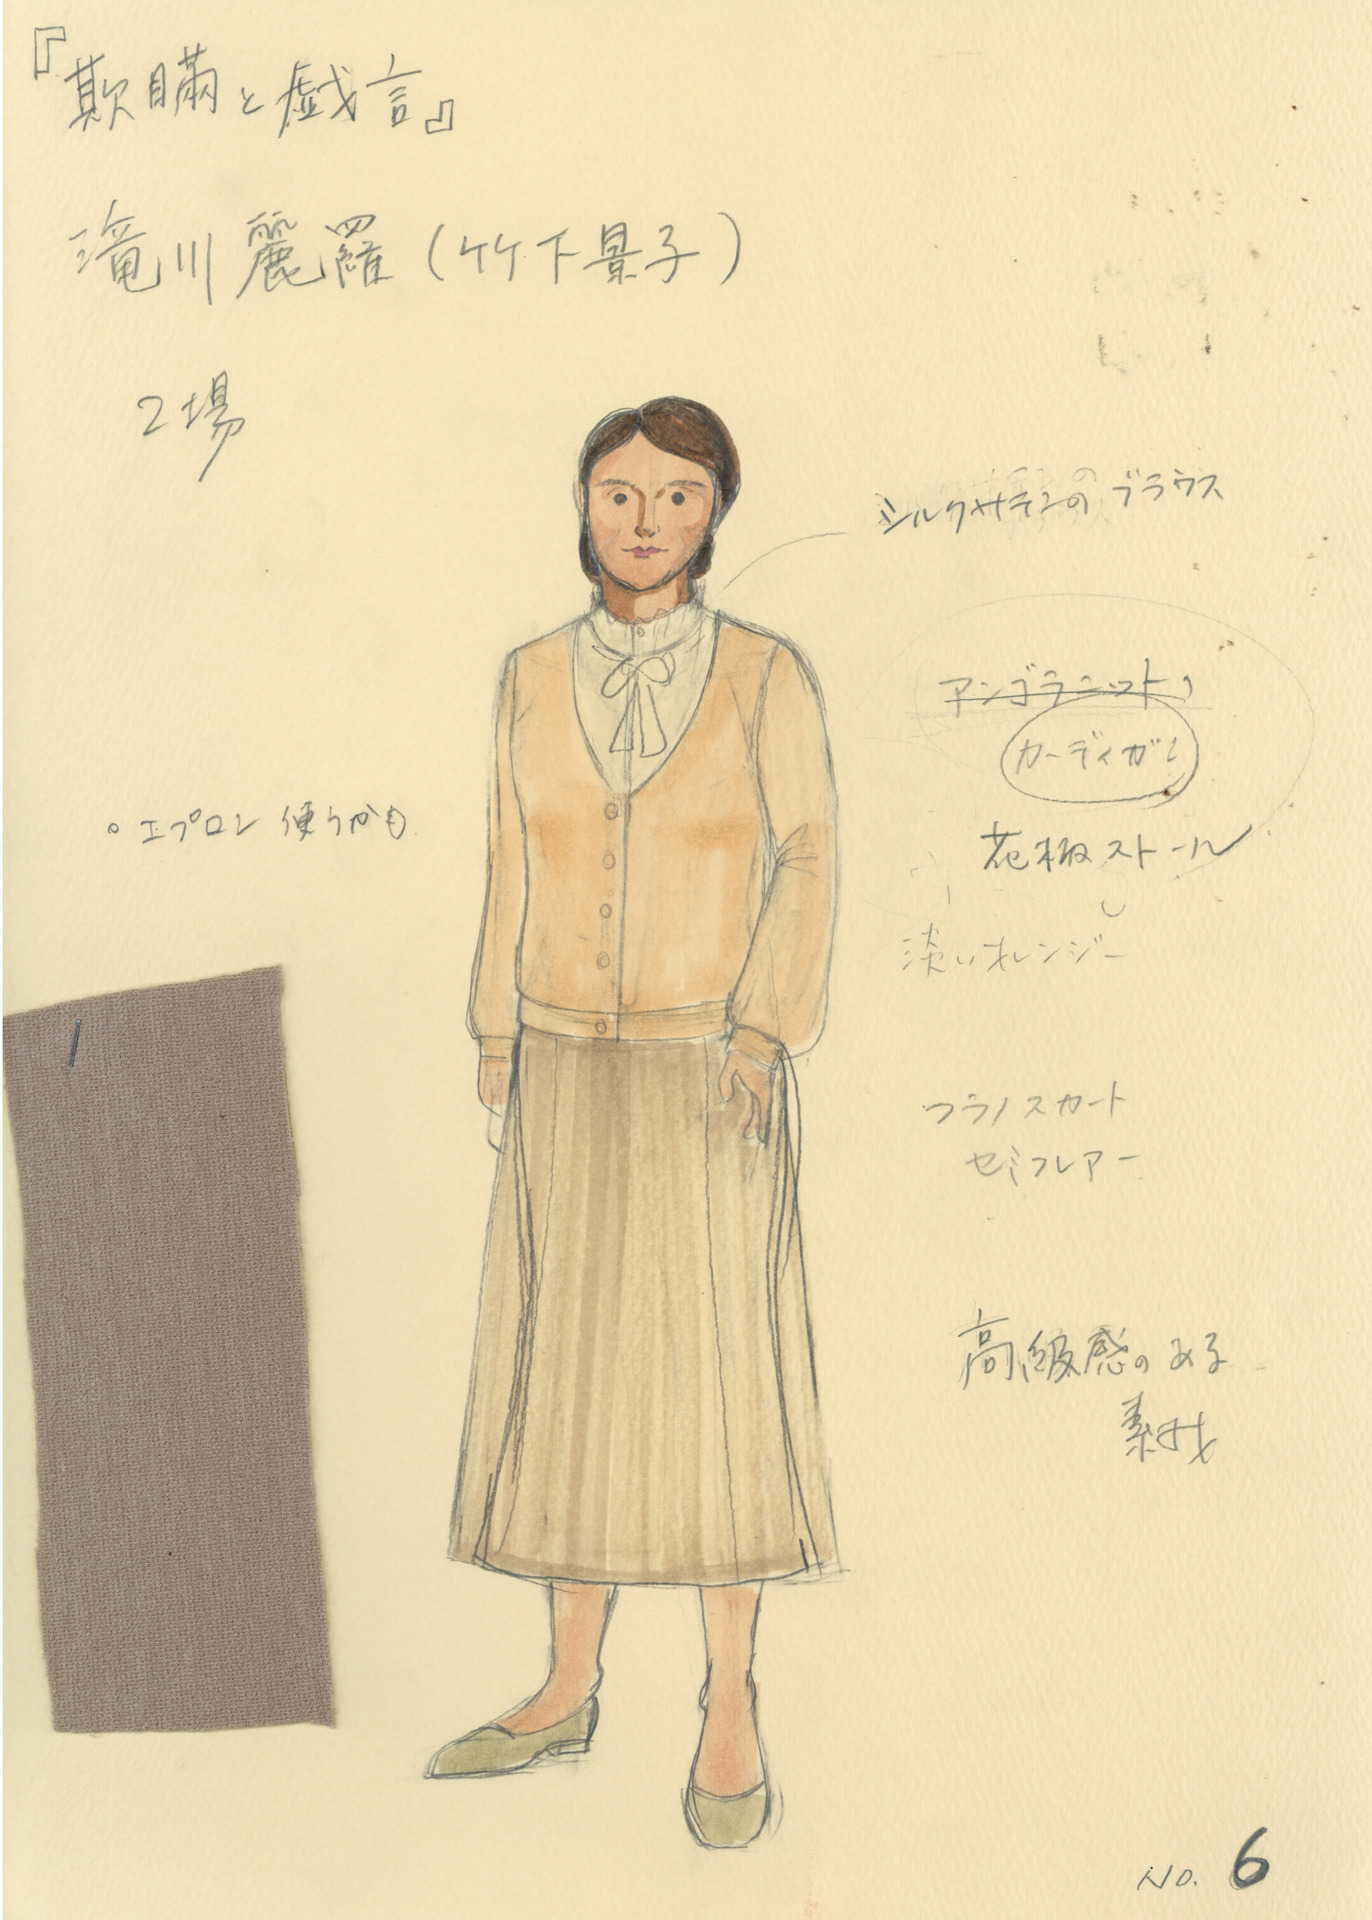 『欺瞞と戯言』
滝川麗羅(竹下景子)
2場
シルクサテンのブラウス
アンゴラニットの
カーディガン
花柄ストール
淡いオレンジ
。エプロン使うかも
フラノスカート
セミフレアー
高級感のある
素材
NO. 6